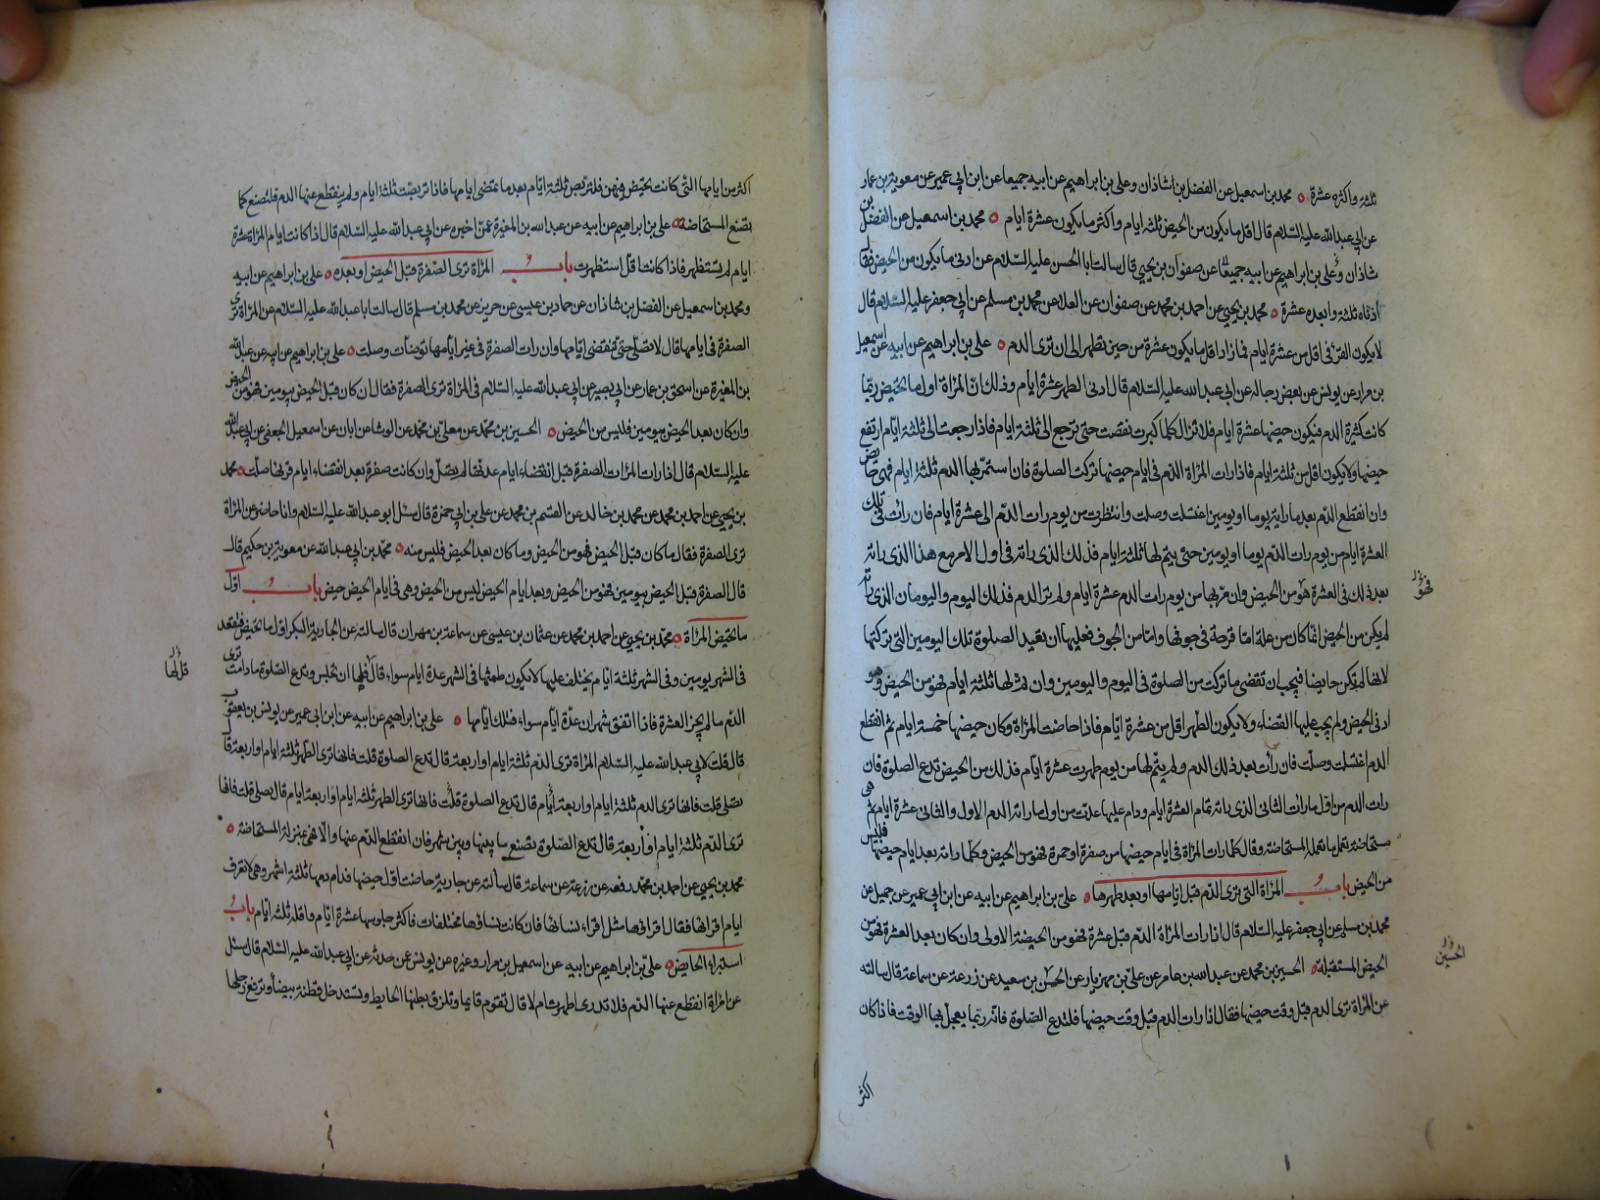 ثلثة واكثره عشرة محمد بن اسمعيل عن الفضل بن شاذان وعلى بن ابراهيم عن ابيه جميعا عن ابن ابى عمير عن معوية بن عمار
عن ابى عبد الله عليه السلام قال اقل ما يكون من الحيض ثلثة ايام واكثر ما يكون عشرة ايام محمد بن اسمعيل عن الفضل بن
شاذان وعلى بن ابراهيم عن ابيه جميعا عن صفوان بن يحيى قال سالت ابا الحسن عليه السلام عن ادنى ما يكون من الحيض فقال
ادناه ثلثة وابعده عشرة محمد بن يحيى عن احمد بن محمد عن صفوان عن العلا عن محمد بن مسلم عن ابى جعفر عليه السلام قال
لا يكون القرء فى اقل من عشرة ايام فما زاد اقل ما يكون عشرة من حين تطهر الى ان ترى الدم على بن ابراهيم عن ابيه عن اسمعيل
بن مرار عن يونس عن بعض رجاله عن ابى عبد الله عليه السلام قال ادنى الطهر عشرة ايام وذلك ان المراة اول ما تحيض ربما
كانت كثيرة الدم فيكون حيضها عشرة ايام فلا تزال كلما كبرت نقصت حتى ترجع الى ثلثة ايام فاذا رجعت الى ثلثة ايام ارتفع
حيضها ولا يكون اقل من ثلثة ايام فاذا رات المراة الدم فى ايام حيضها تركت الصلوة فان استمر بها الدم ثلثة ايام فهى حايض
وان انقطع الدم بعد ما راته يوما او يومين اغتسلت وصلت وانتظرت من يوم رات الدم الى عشرة ايام فان رات فى تلك
العشرة ايام من يوم رات الدم يوما او يومين حتى يتم لها ثلثة ايام فذلك الذى راته فى اول الامر مع هذا الذى راته
بعد ذلك فى العشرة هو من الحيض وان مر بها من يوم رات الدم عشرة ايام ولم تر الدم فذلك اليوم واليومان الذى راته
لم يكن من الحيض انما كان من علة اما قرحة فى جوفها واما من الجوف فعليها ان تعيد الصلوة تلك اليومين التى تركتها
لانها لم تكن حايضا فيجب ان تقضى ما تركت من الصلوة فى اليوم واليومين وان تم لها ثلثة ايام فهو من الحيض وهو
ادنى الحيض ولم يجب عليها القضاء ولا يكون الطهر اقل من عشرة ايام فاذا حاضت المراة وكان حيضها خمسة ايام ثم انقطع
الدم اغتسلت وصلت فان رات بعد ذلك الدم ولم يتم لها من يوم طهرت عشرة ايام فذلك من الحيض تدع الصلوة فان
رات الدم من اول ما رات الثانى الذى راته تمام العشرة ايام ودام عليها عدت من اول ما راته الدم الاول والثانى عشرة ايام ثم هى
مستحاضة تعمل ما تعمله المستحاضة وقال كلما رات المراة فى ايام حيضها من صفرة او حمرة فهو من الحيض وكلما راته بعد ايام حيضها فليس
من الحيض باب المراة التى ترى الدم قبل ايامها او بعد طهرها على بن ابراهيم عن ابيه عن ابن ابى عمير عن جميل عن
محمد بن مسلم عن ابى جعفر عليه السلام قال اذا رات المراة الدم قبل عشرة فهو من الحيضة الاولى وان كان بعد العشرة فهو من
الحيض المستقبلة الحسين بن محمد عن عبد الله بن عامر عن على بن مهزيار عن الحسن بن سعيد عن زرعة عن سماعة قال سالته
عن المراة ترى الدم قبل وقت حيضها فقال اذا رات الدم قبل وقت حيضها فلتدع الصلوة فانه ربما يعجل بها الوقت فاذا كان
فهو
الحسين
اكثر
اكثر من ايامها التى كانت تحيض فيهن فلتربص ثلثة ايام بعد ما تمضى ايامها فاذا تربصت ثلثة ايام ولم ينقطع عنها الدم فلتصنع كما
تصنع المستحاضة على بن ابراهيم عن ابيه عن عبد الله بن المغيرة عمن اخبره عن ابى عبد الله عليه السلام قال اذا كانت ايام المراة عشرة
ايام لم تستظهر فاذا كانت اقل استظهرت باب المراة ترى الصفرة قبل الحيض او بعده على بن ابراهيم عن ابيه
ومحمد بن اسمعيل عن الفضل بن شاذان عن حماد بن عيسى عن حريز عن محمد بن مسلم قال سالت ابا عبد الله عليه السلام عن المراة ترى
الصفرة فى ايامها قال لا تصلى حتى تنقضى ايامها وان رات الصفرة فى غير ايامها توضات وصلت على بن ابراهيم عن ابيه عن عبد الله
بن المغيرة عن اسحق بن عمار عن ابى بصير عن ابى عبد الله عليه السلام فى المراة ترى الصفرة فقال ان كان قبل الحيض بيومين فهو من الحيض
وان كان بعد الحيض بيومين فليس من الحيض الحسين بن محمد عن معلى بن محمد عن الوشا عن ابان عن اسمعيل الجعفى عن ابى عبد الله
عليه السلام قال اذا رات المرات الصفرة قبل انقضاء ايام عدتها لم تصل وان كانت صفرة بعد انقضاء ايام قرئها صلت محمد
بن يحيى عن احمد بن محمد عن محمد بن خالد عن القسم بن محمد عن على بن ابى حمزة قال سئل ابو عبد الله عليه السلام وانا حاضر عن المراة
ترى الصفرة فقال ما كان قبل الحيض فهو من الحيض وما كان بعد الحيض فليس منه محمد بن ابى عبد الله عن معوية بن حكيم قال
قال الصفرة قبل الحيض بيومين فهو من الحيض وبعد ايام الحيض ليس من الحيض وهى فى ايام الحيض حيض باب اول
ما تحيض المراة محمد بن يحيى عن احمد بن محمد عن عثمان بن عيسى عن سماعة بن مهران قال سالته عن الجارية البكر اول ما تحيض فتقعد
فى الشهر يومين وفى الشهر ثلثة ايام يختلف عليها لا يكون طمثها فى الشهر عدة ايام سواء قال فلها ان تجلس وتدع الصلوة ما دامت ترى
الدم ما لم يجز العشرة فاذا اتفق شهران عدة ايام سواء فتلك ايامها على بن ابراهيم عن ابيه عن ابن ابى عمير عن يونس بن يعقوب
قال قلت لابى عبد الله عليه السلام المراة ترى الدم ثلثة ايام او اربعة قال تدع الصلوة قلت فانها ترى الطهر ثلثة ايام او اربعة قال
تصلى قلت فانها ترى الدم ثلثة ايام او اربعة ايام قال تدع الصلوة قلت فانها ترى الطهر ثلثة ايام او اربعة ايام قال تصلى قلت فانها
ترى الدم ثلثة ايام او اربعة قال تدع الصلوة تصنع ما بينها وبين شهر فان انقطع الدم عنها والا فهى بمنزلة المستحاضة
محمد بن يحيى عن احمد بن محمد رفعه عن زرعة عن سماعة قال سألته عن جارية حاضت اول حيضها فدام دمها ثلثة اشهر وهى لا تعرف
ايام اقرائها فقال اقراؤها مثل اقراء نسائها فان كانت نساؤها مختلفات فاكثر جلوسها عشرة ايام واقله ثلثة ايام باب
استبراء الحايض على بن ابراهيم عن ابيه عن اسمعيل بن مرار وغيره عن يونس عن حدثه عن ابى عبد الله عليه السلام قال سئل
عن امراة انقطع عنها الدم فلا تدرى اطهرت ام لا قال تقوم قايما وتلزق بطنها الحايط وتستدخل قطنة بيضا وترفع رجلها
قال لها